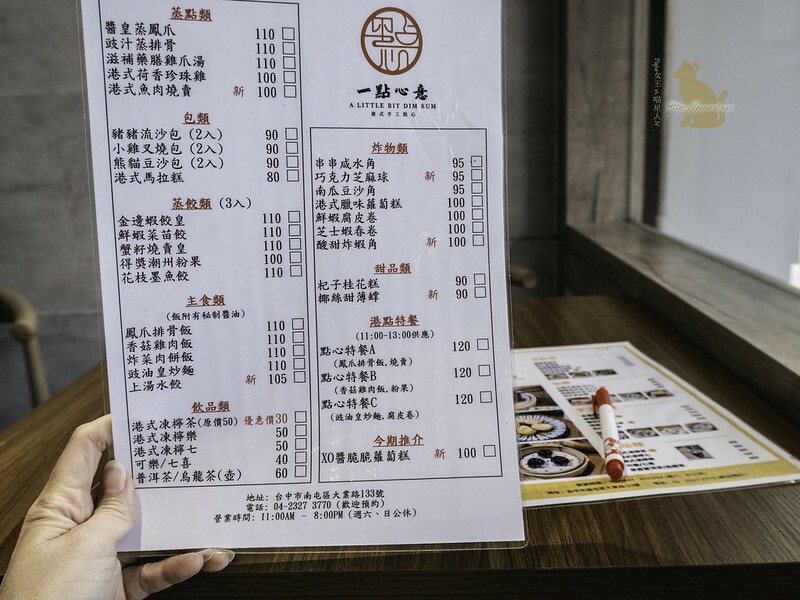 蒸點類
醬皇蒸鳳爪 110
豉汁蒸排骨 110
滋補藥膳雞爪湯 110
港式荷香珍珠雞 100
港式魚肉燒賣 新 100
包類
豬豬流沙包 (2入) 90
小雞叉燒包 (2入) 90
熊貓豆沙包 (2入) 90
港式馬拉糕 80
蒸餃類 (3入)
金邊蝦餃皇 110
鮮蝦菜苗餃 110
蟹籽燒賣皇 110
得獎潮州粉果 100
花枝墨魚餃 110
主食類
(飯附有秘制醬油)
鳳爪排骨飯 110
香菇雞肉飯 110
炸菜肉餅飯 110
豉油皇炒麵 110
上湯水餃 新 105
飲品類
港式凍檸茶(原價50) 優惠價30
港式凍檸樂 50
港式凍檸七 50
可樂/七喜 40
普洱茶/烏龍茶(壺) 60
一點心意
A LITTLE BIT DIM SUM
港式手工點心
炸物類
串串咸水角 95
巧克力芝麻球 新 95
南瓜豆沙角 95
港式臘味蘿蔔糕 100
鮮蝦腐皮卷 100
芝士蝦春卷 100
酸甜炸蝦角 新 100
甜品類
杞子桂花糕 90
椰絲甜薄罉 新 90
港點特餐
(11:00-13:00供應)
點心特餐A 120
(鳳爪排骨飯,燒賣)
點心特餐B 120
(香菇雞肉飯,粉果)
點心特餐C 120
(豉油皇炒麵,腐皮卷)
今期推介
XO醬脆脆蘿蔔糕 新 100
地址: 台中市南屯區大業路133號
電話: 04-2327 3770 (歡迎預約)
營業時間: 11:00AM - 8:00PM (週六、日公休)